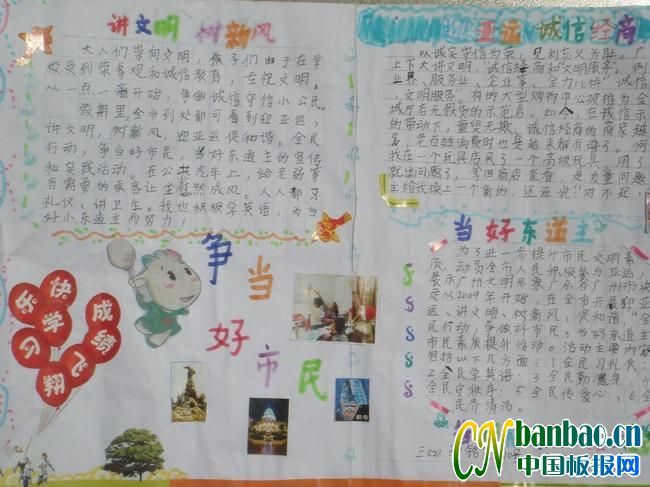 讲文明 树新风
大人们崇尚文明，孩子们由于在学
校受到荣辱观和诚信教育，在祝文明，
以一点一滴开始，争做诚信守信小公民。
假期里，全市到处都可看到迎亚运，
讲文明，树新风，迎亚运促和谐。全民
行动，争当好市民，当好东道主的宣传
和实践活动。在公共汽车上，给老弱等
有需要的乘客让坐蔚然成风。人人都习
礼仪、讲卫生。我也积极学英语，为当
好小东道主而努力！
迎亚运 诚信经商
以诚实守信为荣，见利忘义为耻。广
上下大讲文明，诚信经商和文明服务"。例
业界、服务业、企业等，全力比拼"诚信
，文明服务"有的大型购物中心被推为全
城厅启无假货的示范店。如今，在诚信示
的带动下，童叟无欺、诚信经商的商家越
越多，老百姓消费时也是越来越有谱了。例
我在一个玩具店买了一个高级玩具，用了
就出问题了，拿回商店查看，是质量问题
主给我换上一个新的，还连说"对不起，
当好东道主
为了进一步提升市民文明素
质，动员全市人民积极参与亚运，
展示广州文明形象，广东省广州市决
定从2009年开始，在全市开展迎亚
运、讲文明、树新风、促和谐"全
民行动，争做好市民，当好东道主
市民素质提升活动。活动主要内容
包括以下几方面：1全民习礼仪，
2全民学英语：3全民勤健身：4
全民守秩序：5全民传爱心：6全
民齐清洁。
争当好市民
快乐学习
成绩飞翔
三(2)
banbao.cn
中国板报网